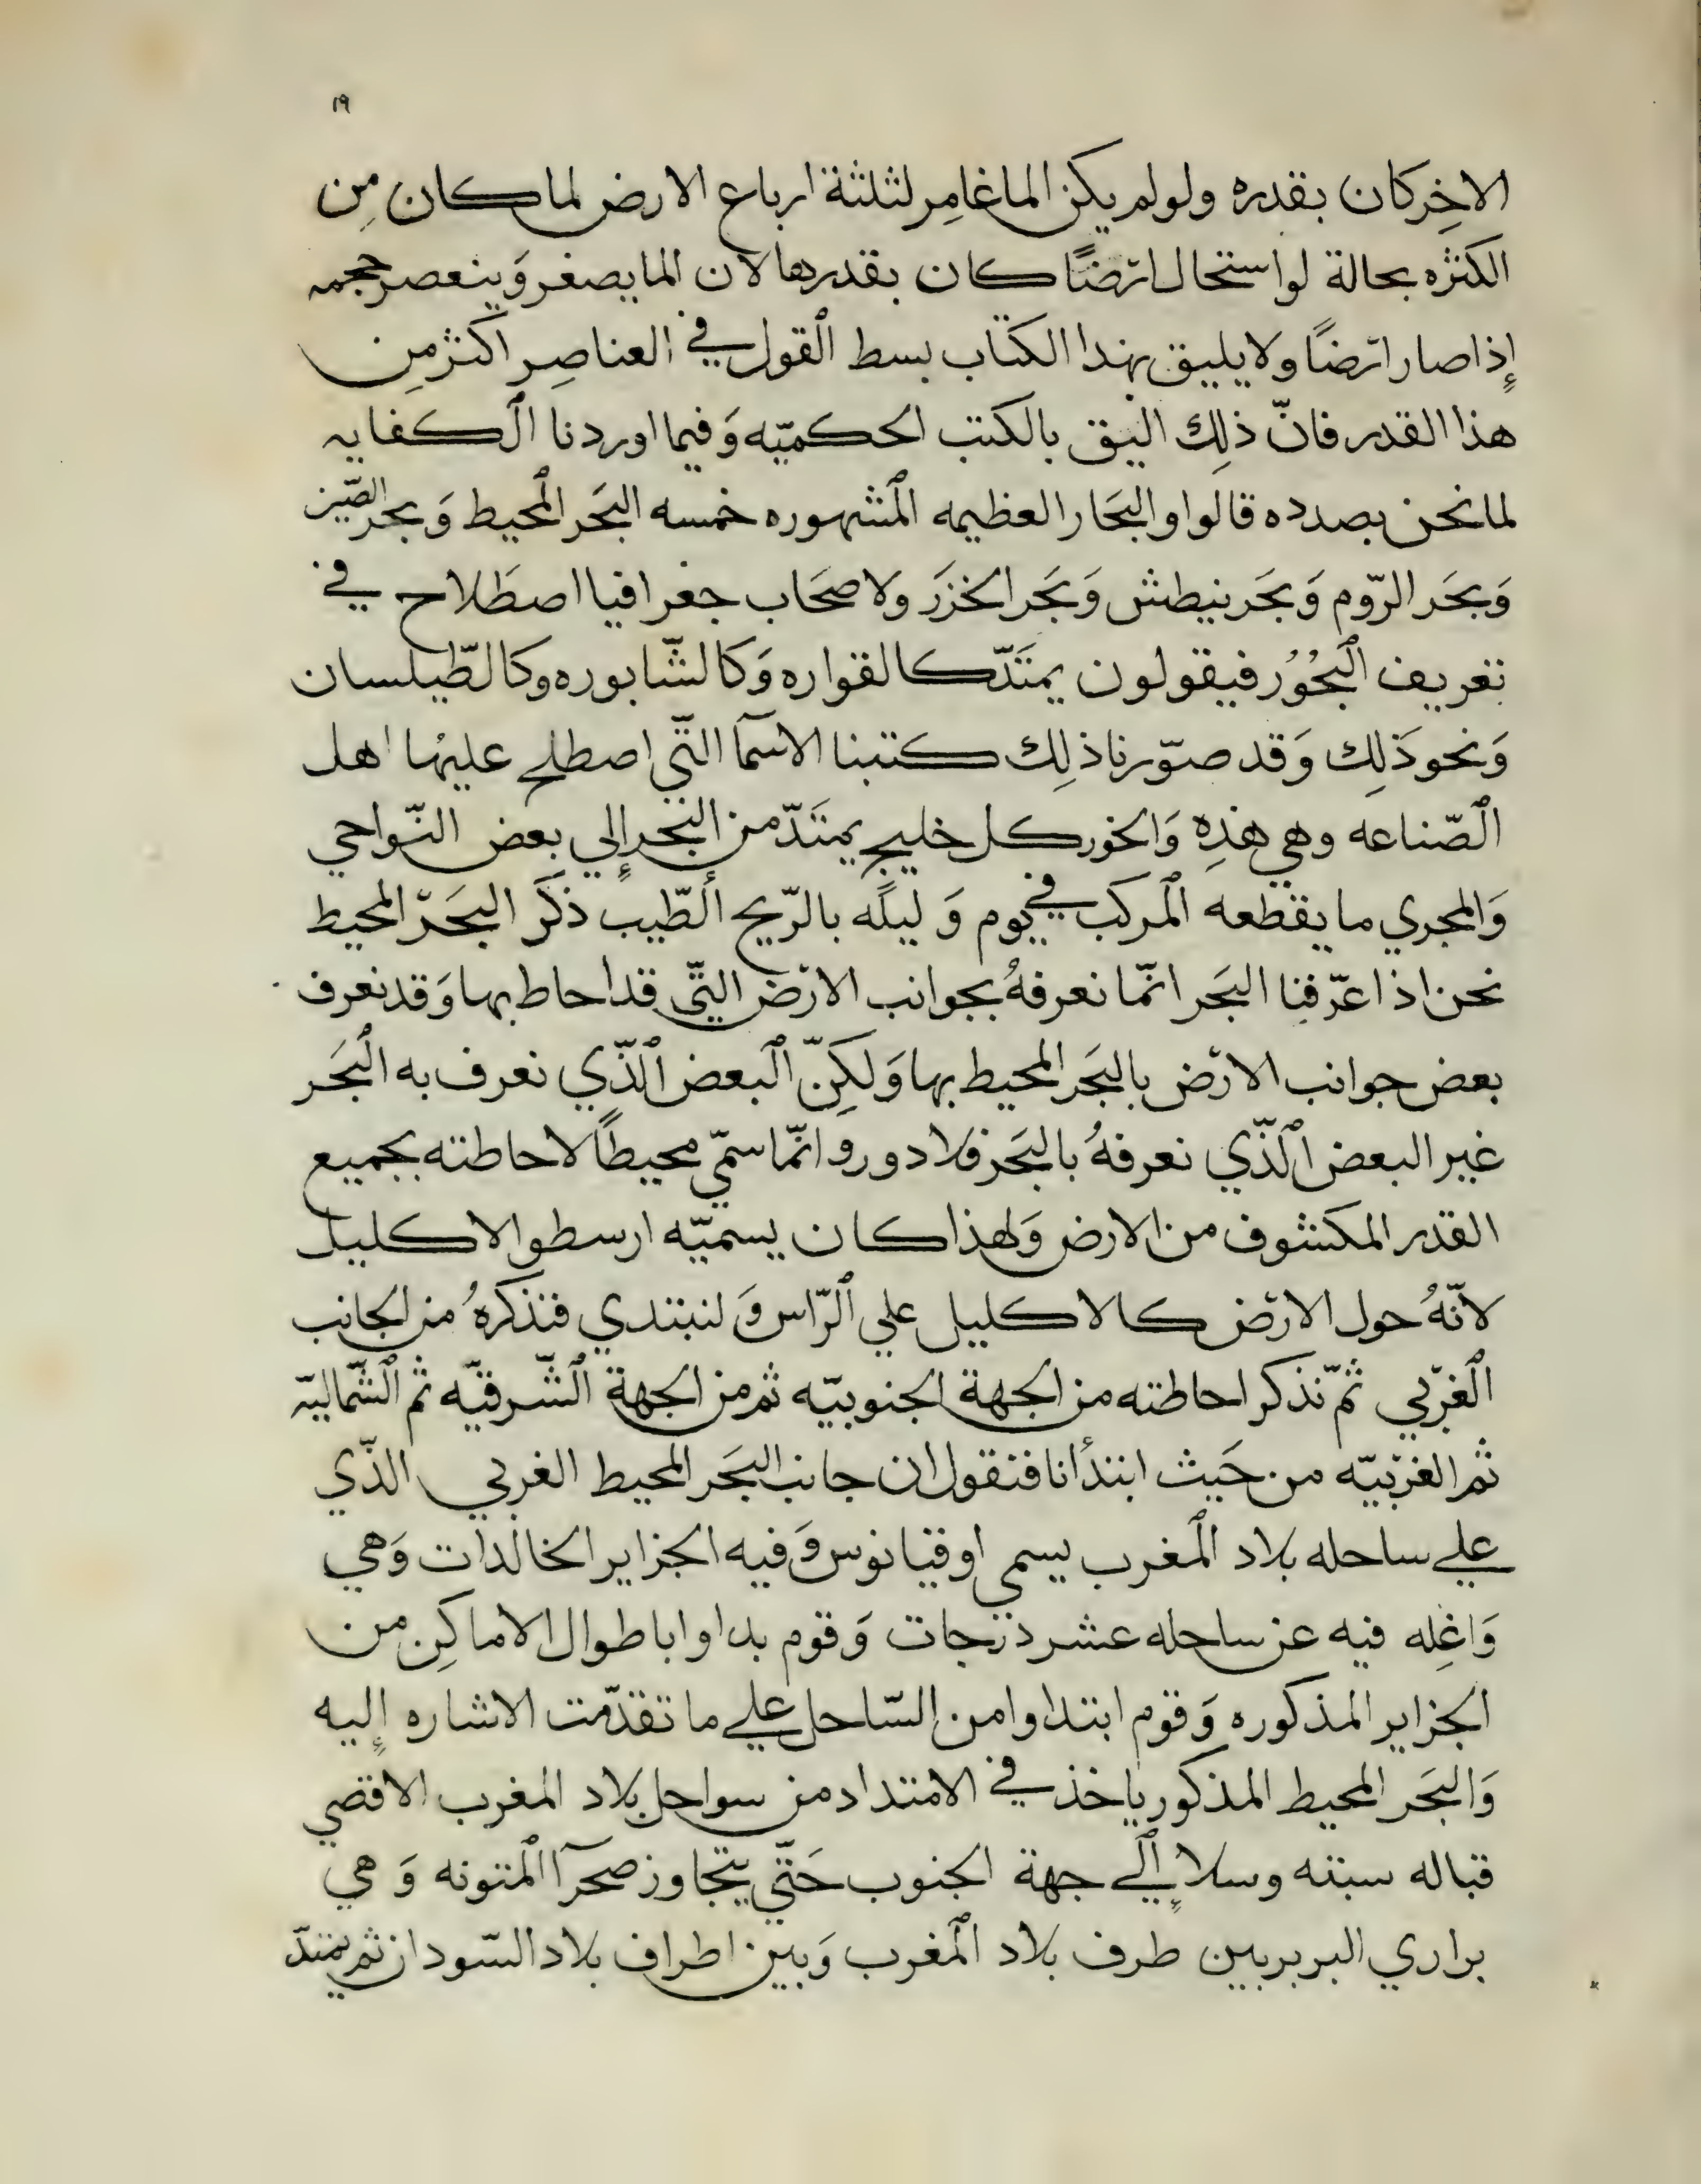 ١٩
الاخِر كان بقدره ولو لم يكن الما غامِر لثلثة ارباع الارض لما كان مِن
الكثره بحالة لو استحال ارْضًا كان بقدرها لان الما يصغر وَينعصر حجمه
إِذا صار ارْضًا ولا يليق بهذا الكتاب بسط ٱلقول في العناصِر اكثر مِن
هذا القدر فانّ ذلِك اليق بالكتب الحكميّه وَفيما اوردنا ٱلكفايه
لما نحن بصدده قالوا والبحَار العظيمه ٱلمشهوره خمسه البحَر ٱلمحيط وَبحر الصّين
وَبحَر الرّوم وَبحَر نيطش وَبحَر الخزَر ولاصحَاب جغرافيا اصطَلاح في
تعريف ٱلبحُوُر فيقولون يمتَدّ كالقواره وَكالشّابوره وكالطّيلسان
وَنحو ذَلِك وَقد صوّرنا ذلِك كتبنا الاسمآ التّي اصطلح عليهُا اهل
ٱلصّناعه وهي هذِه وَالخور كل خليج يمتَدّ من البحر إِلي بعض النّواحي
وَالمجري ما يقطعه ٱلمركب في يوم وَ ليلَه بالرّيح ٱلطّيب ذكَر البحَرْ المحيط
نحن اذا عرّفنا البحَر انّما نعرفهُ بجوانب الارْض التّي قد احاط بها وَقد نعرف
بعض جوانب الارْض بالبحَر المحيط بها وَلكِنّ ٱلبعض ٱلذّي نعرف به ٱلبحَر
غير البعض ٱلذّي نعرفهُ بالبحَر فلا دور وانّما سمّي محيطًا لاحاطته بجميع
القدر المكشوف من الارض وَلهذا كان يسميّه ارسطو الاكليل
لانّهُ حول الارْض كالاكليل علي ٱلرّاس وَ لنبتدي فتذكرهُ من الجانب
ٱلغرْبي ثمّ نذكر احاطته من الجهة الجنوبيّه ثم من الجهة ٱلشّرقيّه ثم ٱلشّماليّه
ثم الغرْبيّه من حَيث ابتدأنا فنقول ان جانب البحَر المحيط الغربي الذّي
علي ساحله بلاد ٱلمغرب يسمي اوقيانوس وَفيه الجزاير الخالدات وَهي
وَاغِله فيه عن ساحله عشر درْجات وَقوم بداوا باطوال الاماكِن من
الجزاير المذكوره وَقوم ابتداوا من السّاحل علي ما تقدّمت الاشاره إِليه
وَالبحَر المحيط المذكور ياخذ في الامتداد من سواحل بلاد المغرب الاقصي
قباله سبته وسلا إِلي جهة الجنوب حَتّي يتجاوز صحرآ ٱلمتونه وَ هي
براري البربر بين طرف بلاد ٱلمغرب وَبين اطراف بلاد السّودان ثم يمتدّ